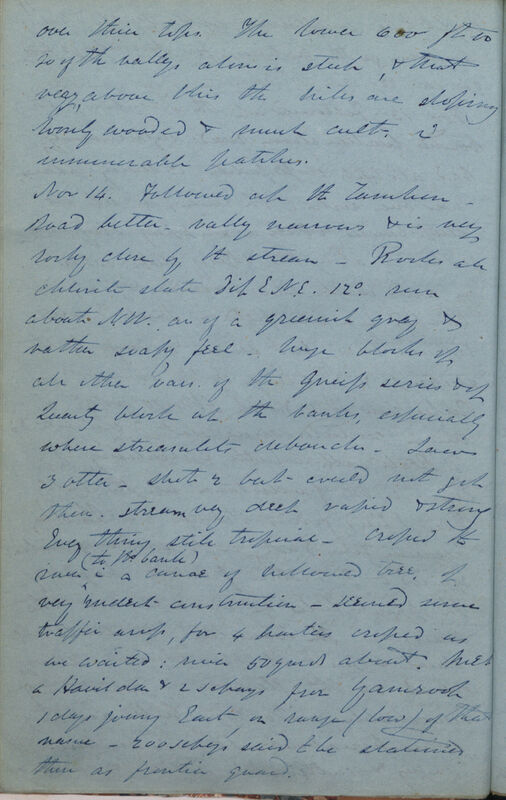 over their tops. The lower 600 ft to
of the valleys alone is steep, & that
very, above this the hills are sloping
loosely wooded & much cult. in
innumerable patches.
Nov 14. Followed up the Tambur -
Road better - valley narrows & is very
rocky close by the stream - Rocks all
chlorite slate Dip E.N.E. 12°. run
about NW. are of a greenish gray &
rather soapy feel - huge blocks of
all other vars. of the Gneiss series & of
Quartz block up the banks, especially
where streamlets debouche. Saw
3 otter - shot 2 but could not get
them. stream very deep rapid & strong
Every thing still tropical - crossed the
river in a canoe of hollowed tree, of
(to W bank)
very rudest construction - seemed some
traffic across, for 4 parties crossed as
we waited: river 50 yards about. Met
a Havildar & 2 sepoys from Yamroop
days journey East, on range (low) of that
name - 200 sepoys said to be stationed
there as frontier guard.